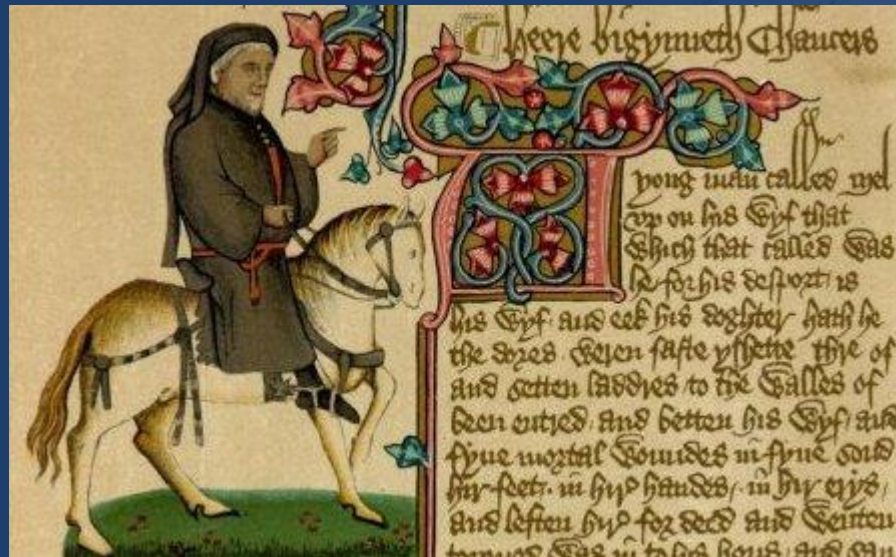 heere bigynneth Chaucers
A
yong man called mel
vp on his Wyf that
Which that called Was
he for his desport is
his Wyf and eek his doghter hath he
the dores Weren faste yshette thre of
and setten laddres to the Walles of
been entred and betten his Wyf and
fyue mortal Woundes in fyue sond
hir feet in hir handes in hir erys
and leften hir for deed and Wenten